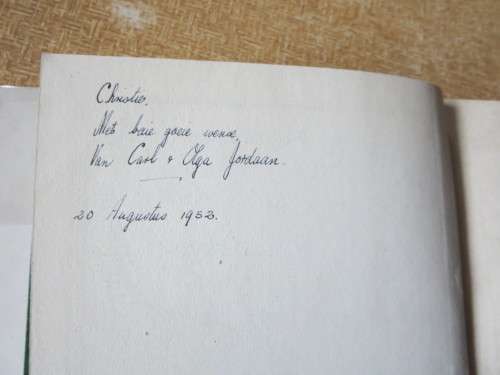 Christie,
Met baie goeie wense,
Van Carl & Olga Jordaan.
20 Augustus 1952.